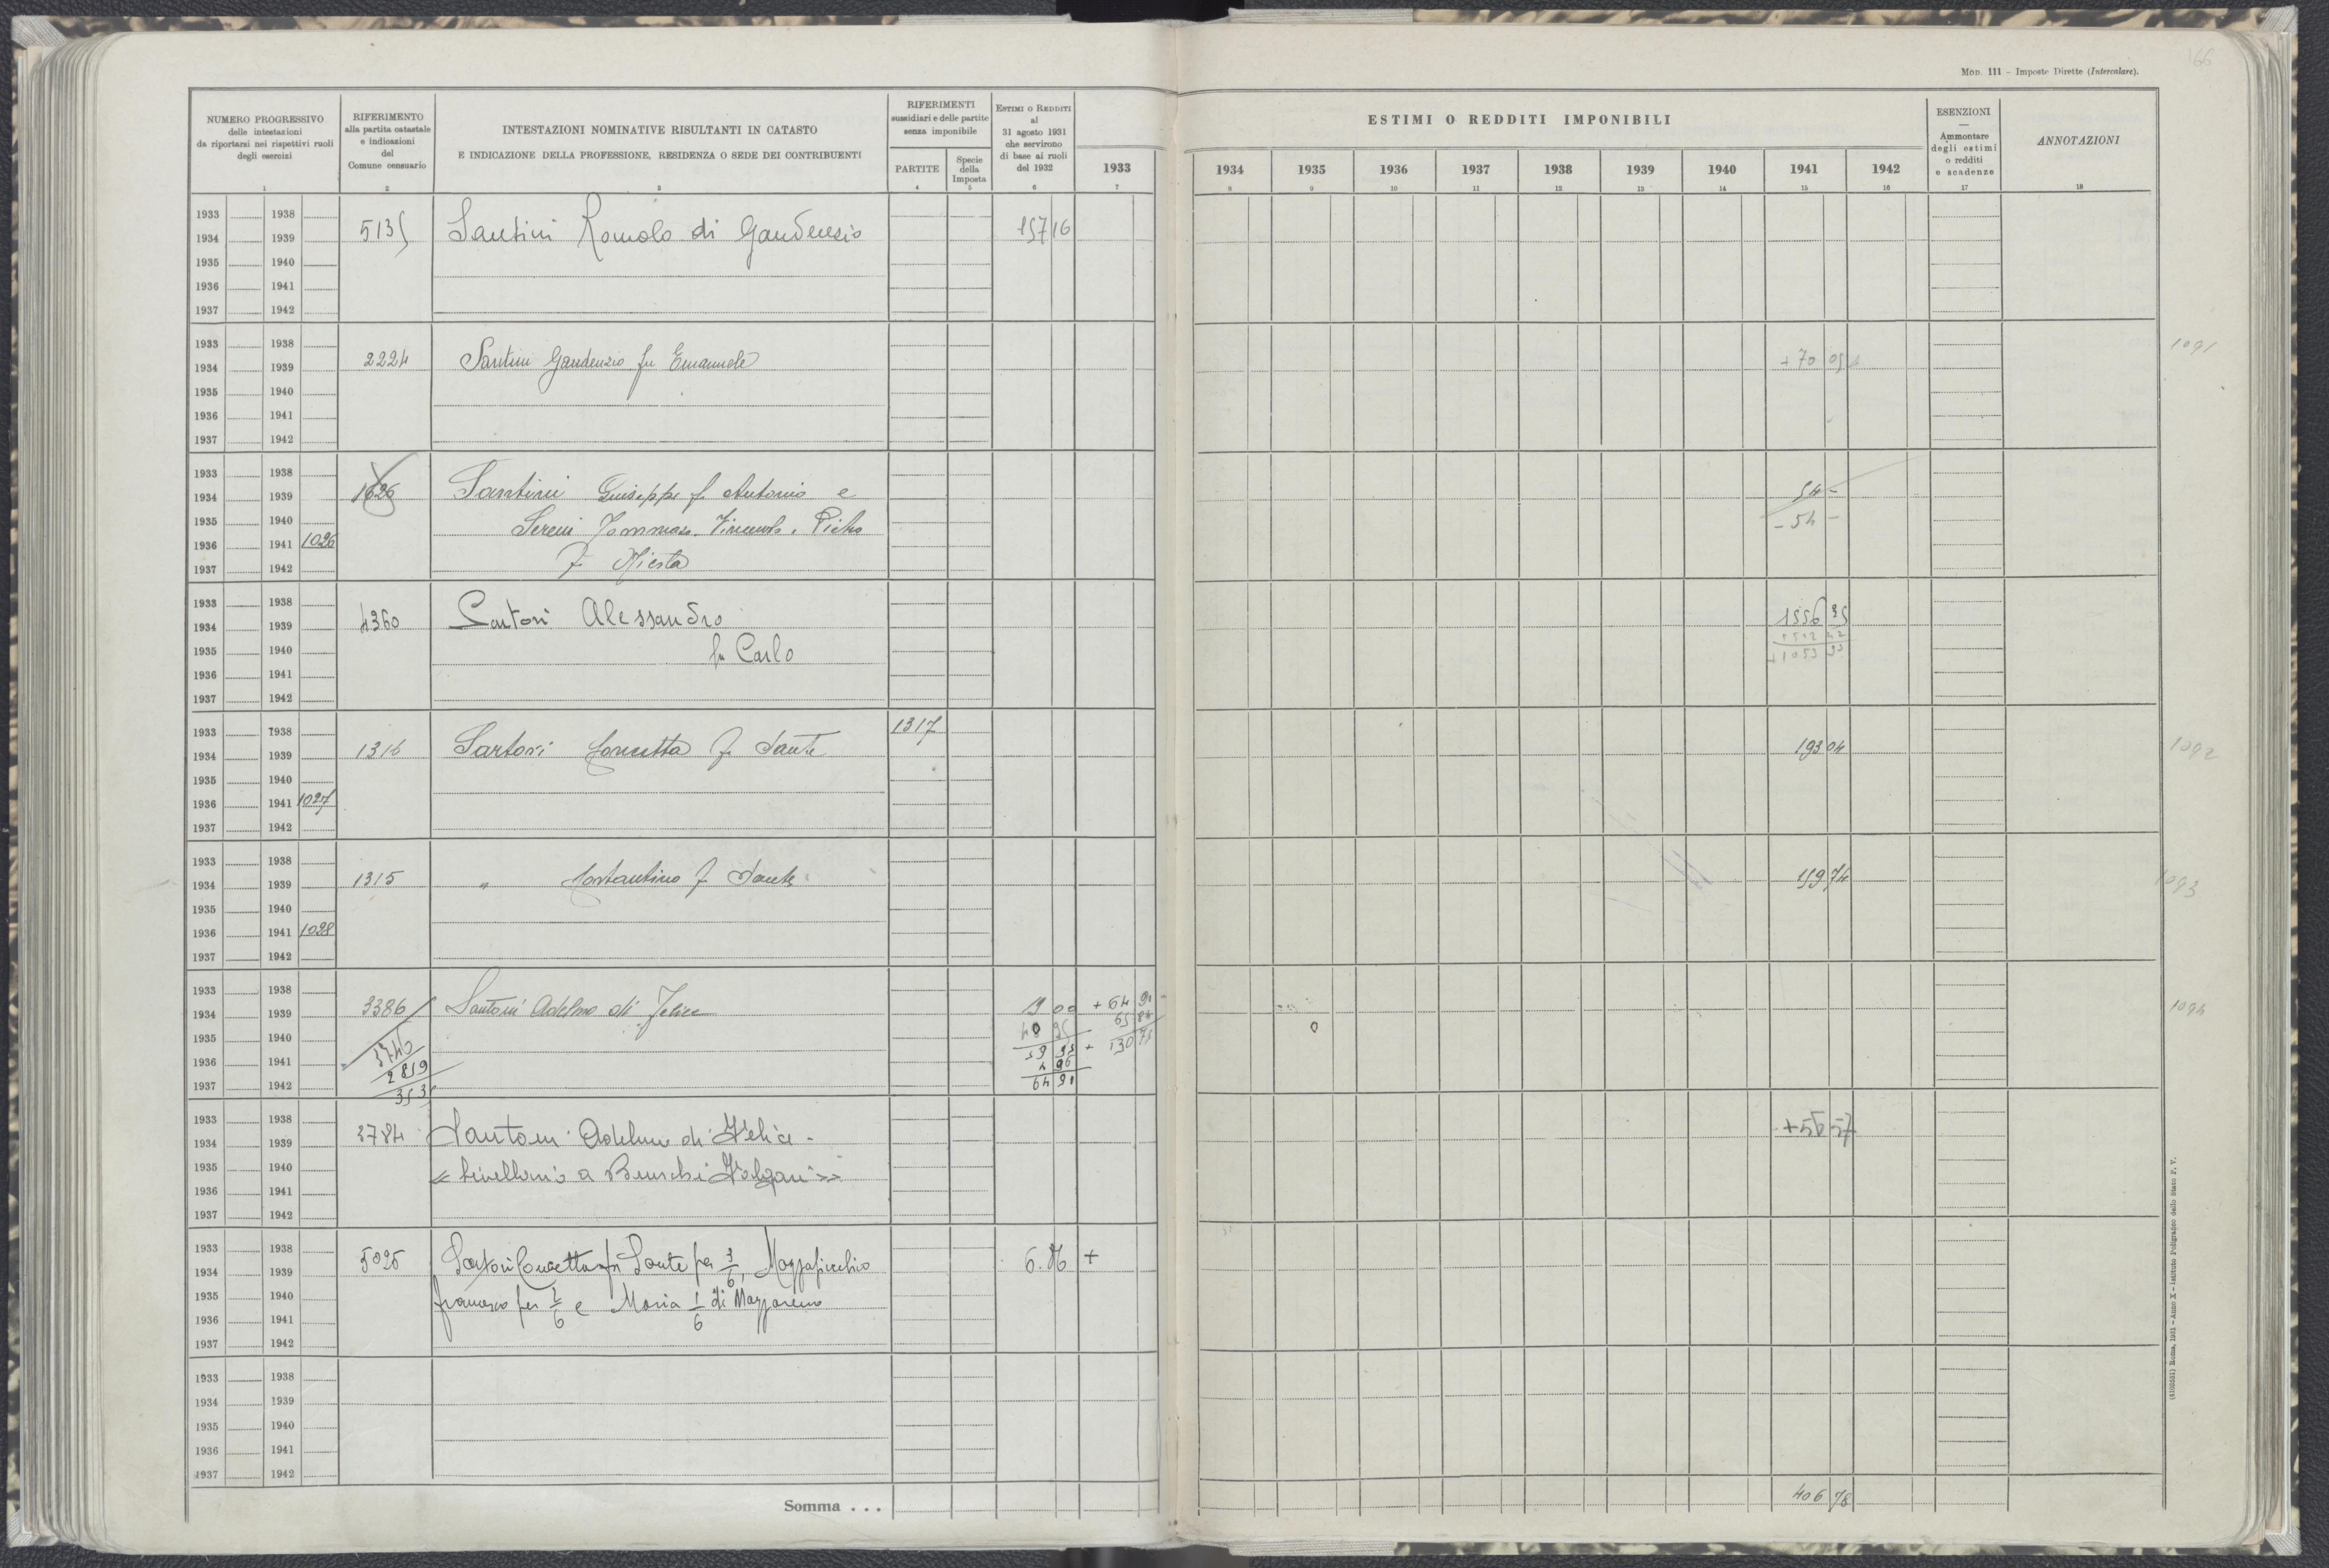 166
MOD. 111 – Imposte Dirette (Intercalare).
NUMERO PROGRESSIVO
delle intestazioni
da riportarsi nei rispettivi ruoli
degli esercizi
1
RIFERIMENTO
alla partita catastale
e indicazioni
del
Comune censuario
2
INTESTAZIONI NOMINATIVE RISULTANTI IN CATASTO
E INDICAZIONE DELLA PROFESSIONE, RESIDENZA O SEDE DEI CONTRIBUENTI
3
RIFERIMENTI
sussidiari e delle partite
senza imponibile
PARTITE
4
Specie
della
Imposta
5
ESTIMI O REDDITI
al
31 agosto 1931
che servirono
di base ai ruoli
del 1932
6
1933
7
ESTIMI O REDDITI IMPONIBILI
1934 1935 1936 1937 1938 1939 1940 1941 1942
8 9 10 11 12 13 14 15 16
ESENZIONI
—
Ammontare
degli estimi
o redditi
e scadenze
17
ANNOTAZIONI
18
1933 1938
1934 1939 5135 Santini Romolo di Gaudenzio 157 16
1935 1940
1936 1941
1937 1942
1933 1938 1091
1934 1939 2224 Santini Gaudenzio fu Emanuele + 70 05
1935 1940
1936 1941
1937 1942
1933 1938
1934 1939 1626 Santini Giuseppe f. Antonio e 54 –
1935 1940 Sereni Tommaso. Vincenzo. Pietro – 54 –
1936 1941 1026
1937 1942
1933 1938
1934 1939 4360 Sartori Alessandro 1556 35
1935 1940 fu Carlo
+1053 93
1936 1941
1937 1942
1933 1938 1317
1934 1939 1316 Sartori Concetta f. Sante 193 04 1092
1935 1940
1936 1941 1027
1937 1942
1933 1938
1934 1939 1315 " Costantino f. Sante 159 74 1093
1935 1940
1936 1941 1028
1937 1942
1933 1938
1934 1939 3386 Santoni Adelmo di Felice 19 00 + 64 91 1094
40 95 65 84
1935 1940 3740 59 95 + 130 75
1936 1941 2819 4 96
1937 1942 3535 64 91
1933 1938
1934 1939 3784 Santoni Adelmo di Felice - +56 57
1935 1940 « livellario a Bruschi Falgari »
1936 1941
1937 1942
1933 1938
1934 1939 5025 Sartori Concetta fu Sante per 3/6, Mazzapicchio 6.86 +
1935 1940 Francesco per 2/6 e Maria 1/6 di Nazzareno
1936 1941
1937 1942
1933 1938
1934 1939
1935 1940
1936 1941
1937 1942
Somma . . . 406 78
(4102651) Roma, 1931 – Anno X – Istituto Poligrafico dello Stato P. V.